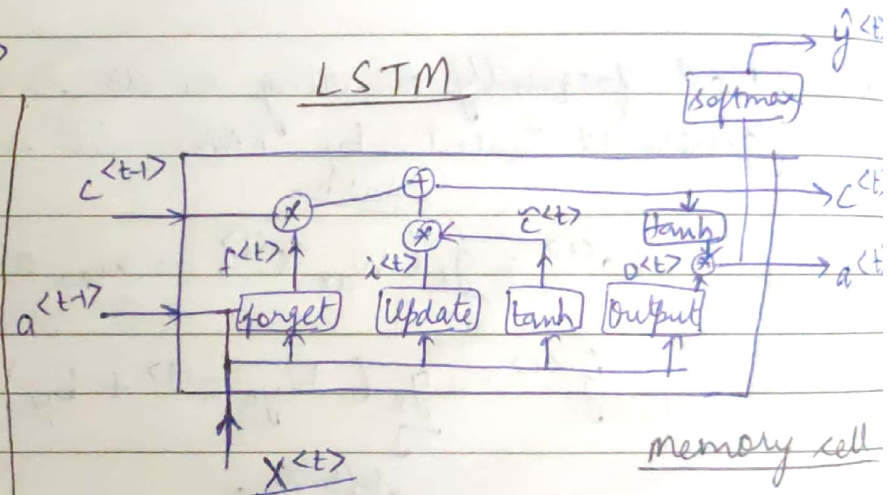 ŷ<t>
LSTM
softmax
c<t-1>
+
c<t>
*
c̃<t>
tanh
f<t>
*
i<t>
o<t>
*
a<t>
a<t-1>
forget
Update
tanh
Output
X<t>
memory cell